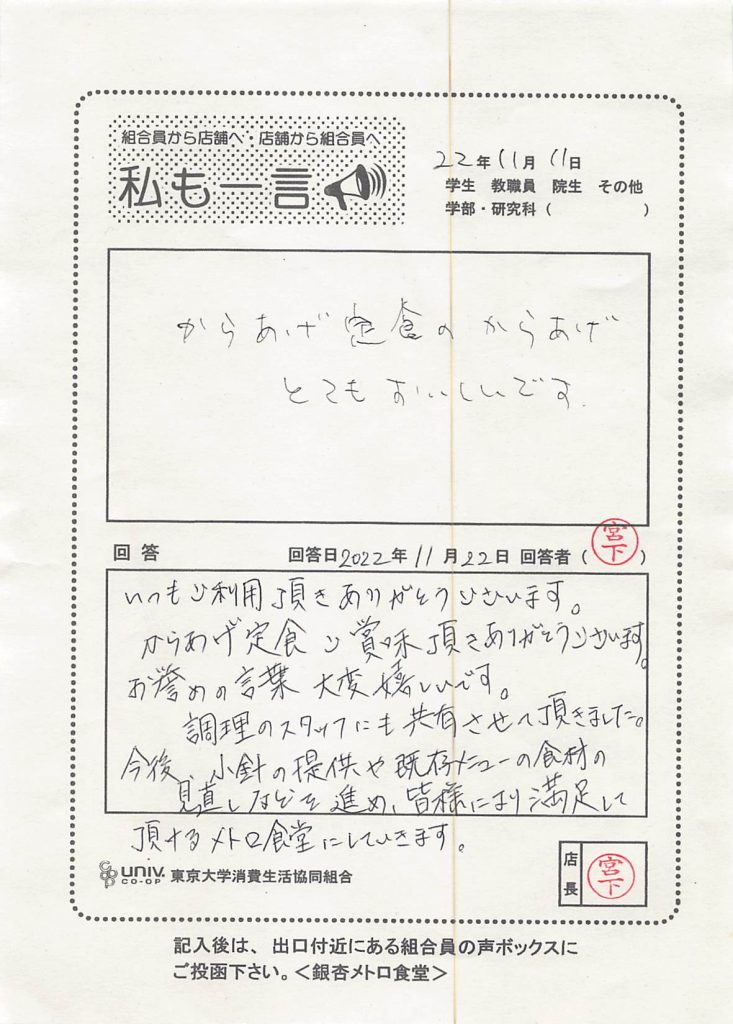 組合員から店舗へ・店舗から組合員へ
私も一言
22年11月11日
学生 教職員 院生 その他
学部・研究科（ ）
からあげ定食のからあげ
とてもおいしいです.
回答 回答日2022年11月22日 回答者（宮下）
いつもご利用頂きありがとうございます。
からあげ定食ご賞味頂きありがとうございます。
お誉めの言葉大変嬉しいです。
調理のスタッフにも共有させて頂きました。
今後、小針の提供や既存メニューの食材の
見直しなどを進め、皆様により満足して
頂けるメトロ食堂にしていきます。
UNIV. CO-OP 東京大学消費生活協同組合
店長 宮下
記入後は、出口付近にある組合員の声ボックスに
ご投函下さい。＜銀杏メトロ食堂＞